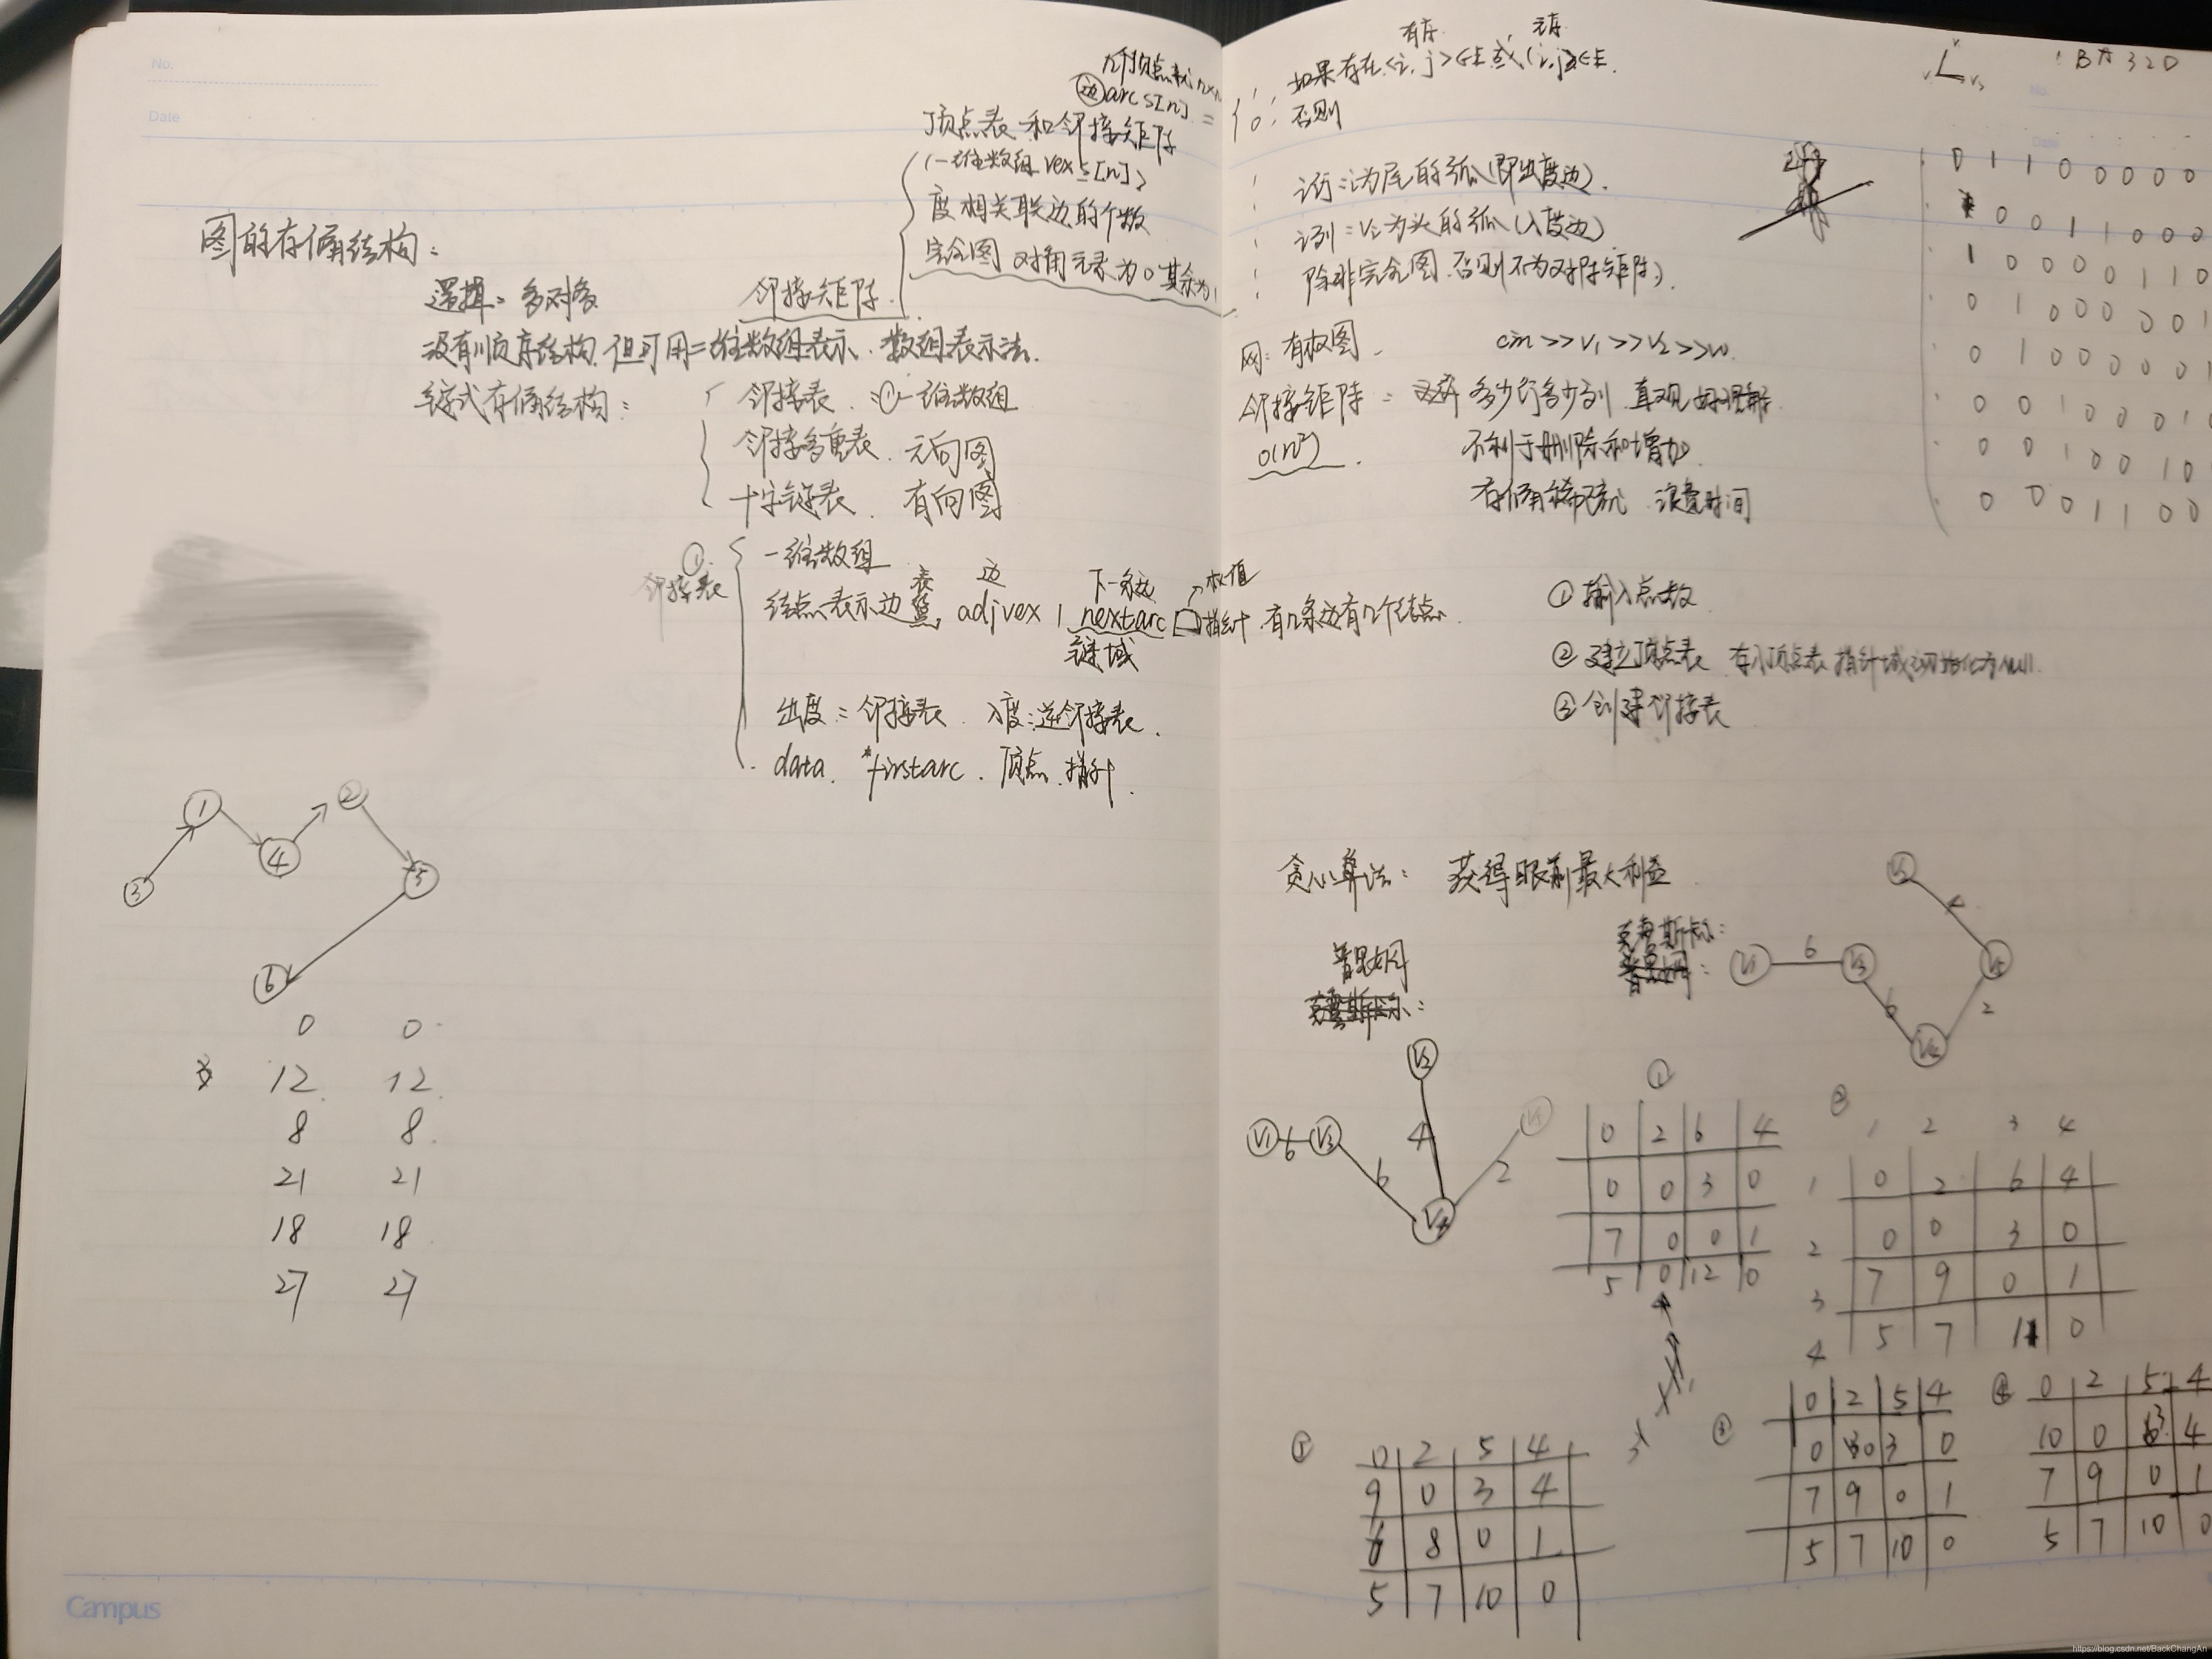 No.
Date
图的存储结构：
逻辑：多对多
没有顺序结构，但可用二维数组表示．数组表示法．
链式存储结构：
邻接表．①一维数组
邻接多重表．无向图
十字链表．有向图
邻接矩阵
边 arcs[n] =
顶点表和邻接矩阵
(一维数组 vexs[n])
度 相关联边的个数
完全图 对角元素为0 其余为1
① 邻接表
一维数组
表 边 下一条边 →权值
结点表示边 adjvex | nextarc 指针．有n条边有n个结点．
链域
出度：邻接表．入度：逆邻接表．
data. *firstarc．顶点．指针．
1
2
3
4
5
6
0 0
12 12
8 8
21 21
18 18
27 27
Campus
有序 无序
1: 如果存在<i,j>∈E 或 (i,j)∈E
0: 否则
i行：i为尾的弧(即出度边)．
i列：vi为头的弧(入度边)
除非完全图．否则不为对称矩阵)．
网：有权图．
cin>>v1>>v2>>w.
邻接矩阵： 多少行多少列 直观 好理解
O(n²)
不利于删除和增加
存储稀疏 浪费时间
BA32D
No.
Date
0 1 1 0 0 0 0 0
0 0 1 1 0 0 0
1 0 0 0 0 1 1 0
0 1 0 0 0 0 0 1
0 1 0 0 0 0 0
0 0 1 0 0 0 1
0 0 1 0 0 1 0
0 0 0 1 1 0 0
① 输入点数
② 建立顶点表 存入顶点表 指针域初始化为null.
③ 创建邻接表
贪心算法： 获得眼前最大利益
普里姆
克鲁斯卡尔：
克鲁斯卡：
普里姆：
V1 6 V3
6
V2
4
V4
2
V1 6 V3
6
V4
2
V5
4
V2
①
0 2 6 4
0 0 3 0
7 0 0 1
5 0 12 0
②
1 2 3 4
1 0 2 6 4
2 0 0 3 0
3 7 9 0 1
4 5 7 11 0
③
0 2 5 4
0 0 3 0
7 9 0 1
5 7 10 0
④
0 2 5 4
10 0 3 4
7 9 0 1
5 7 10 0
⑤
0 2 5 4
9 0 3 4
6 8 0 1
5 7 10 0
https://blog.csdn.net/BackChangAn